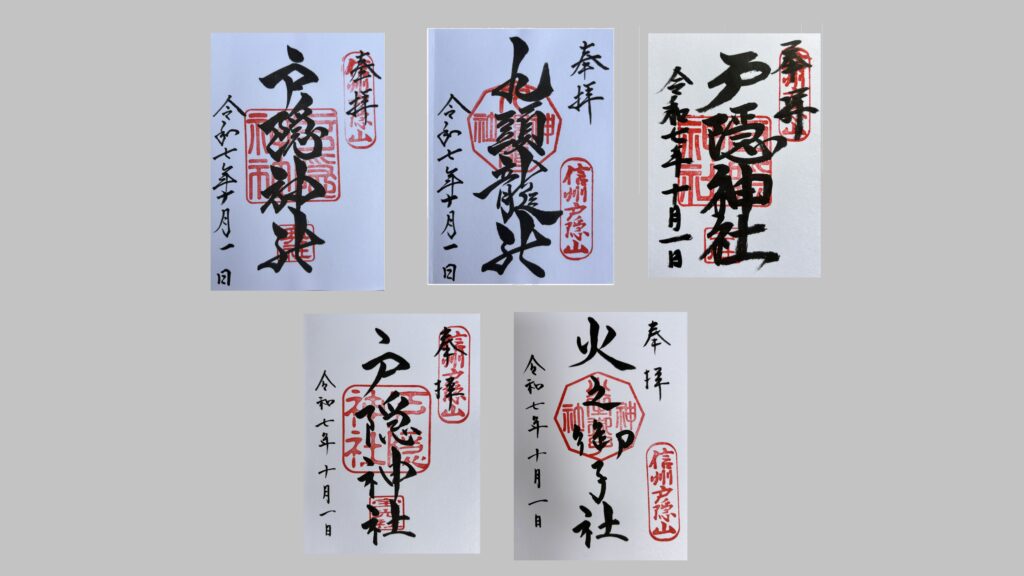 奉拝
信州戸隠山
戸隠神社
令和七年十月一日
奉拝
信州戸隠山
九頭龍社
令和七年十月一日
奉拝
信州戸隠山
戸隠神社
令和七年十月一日
奉拝
信州戸隠山
戸隠神社
令和七年十月一日
奉拝
信州戸隠山
火之御子社
令和七年十月一日